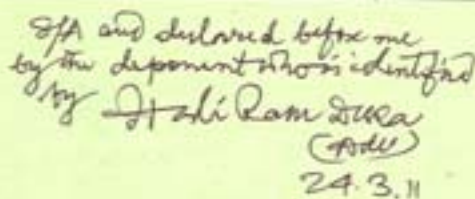 S/A and declared before me
by the deponent who is identified
by Hali Ram Dura
(Adv)
24.3.11